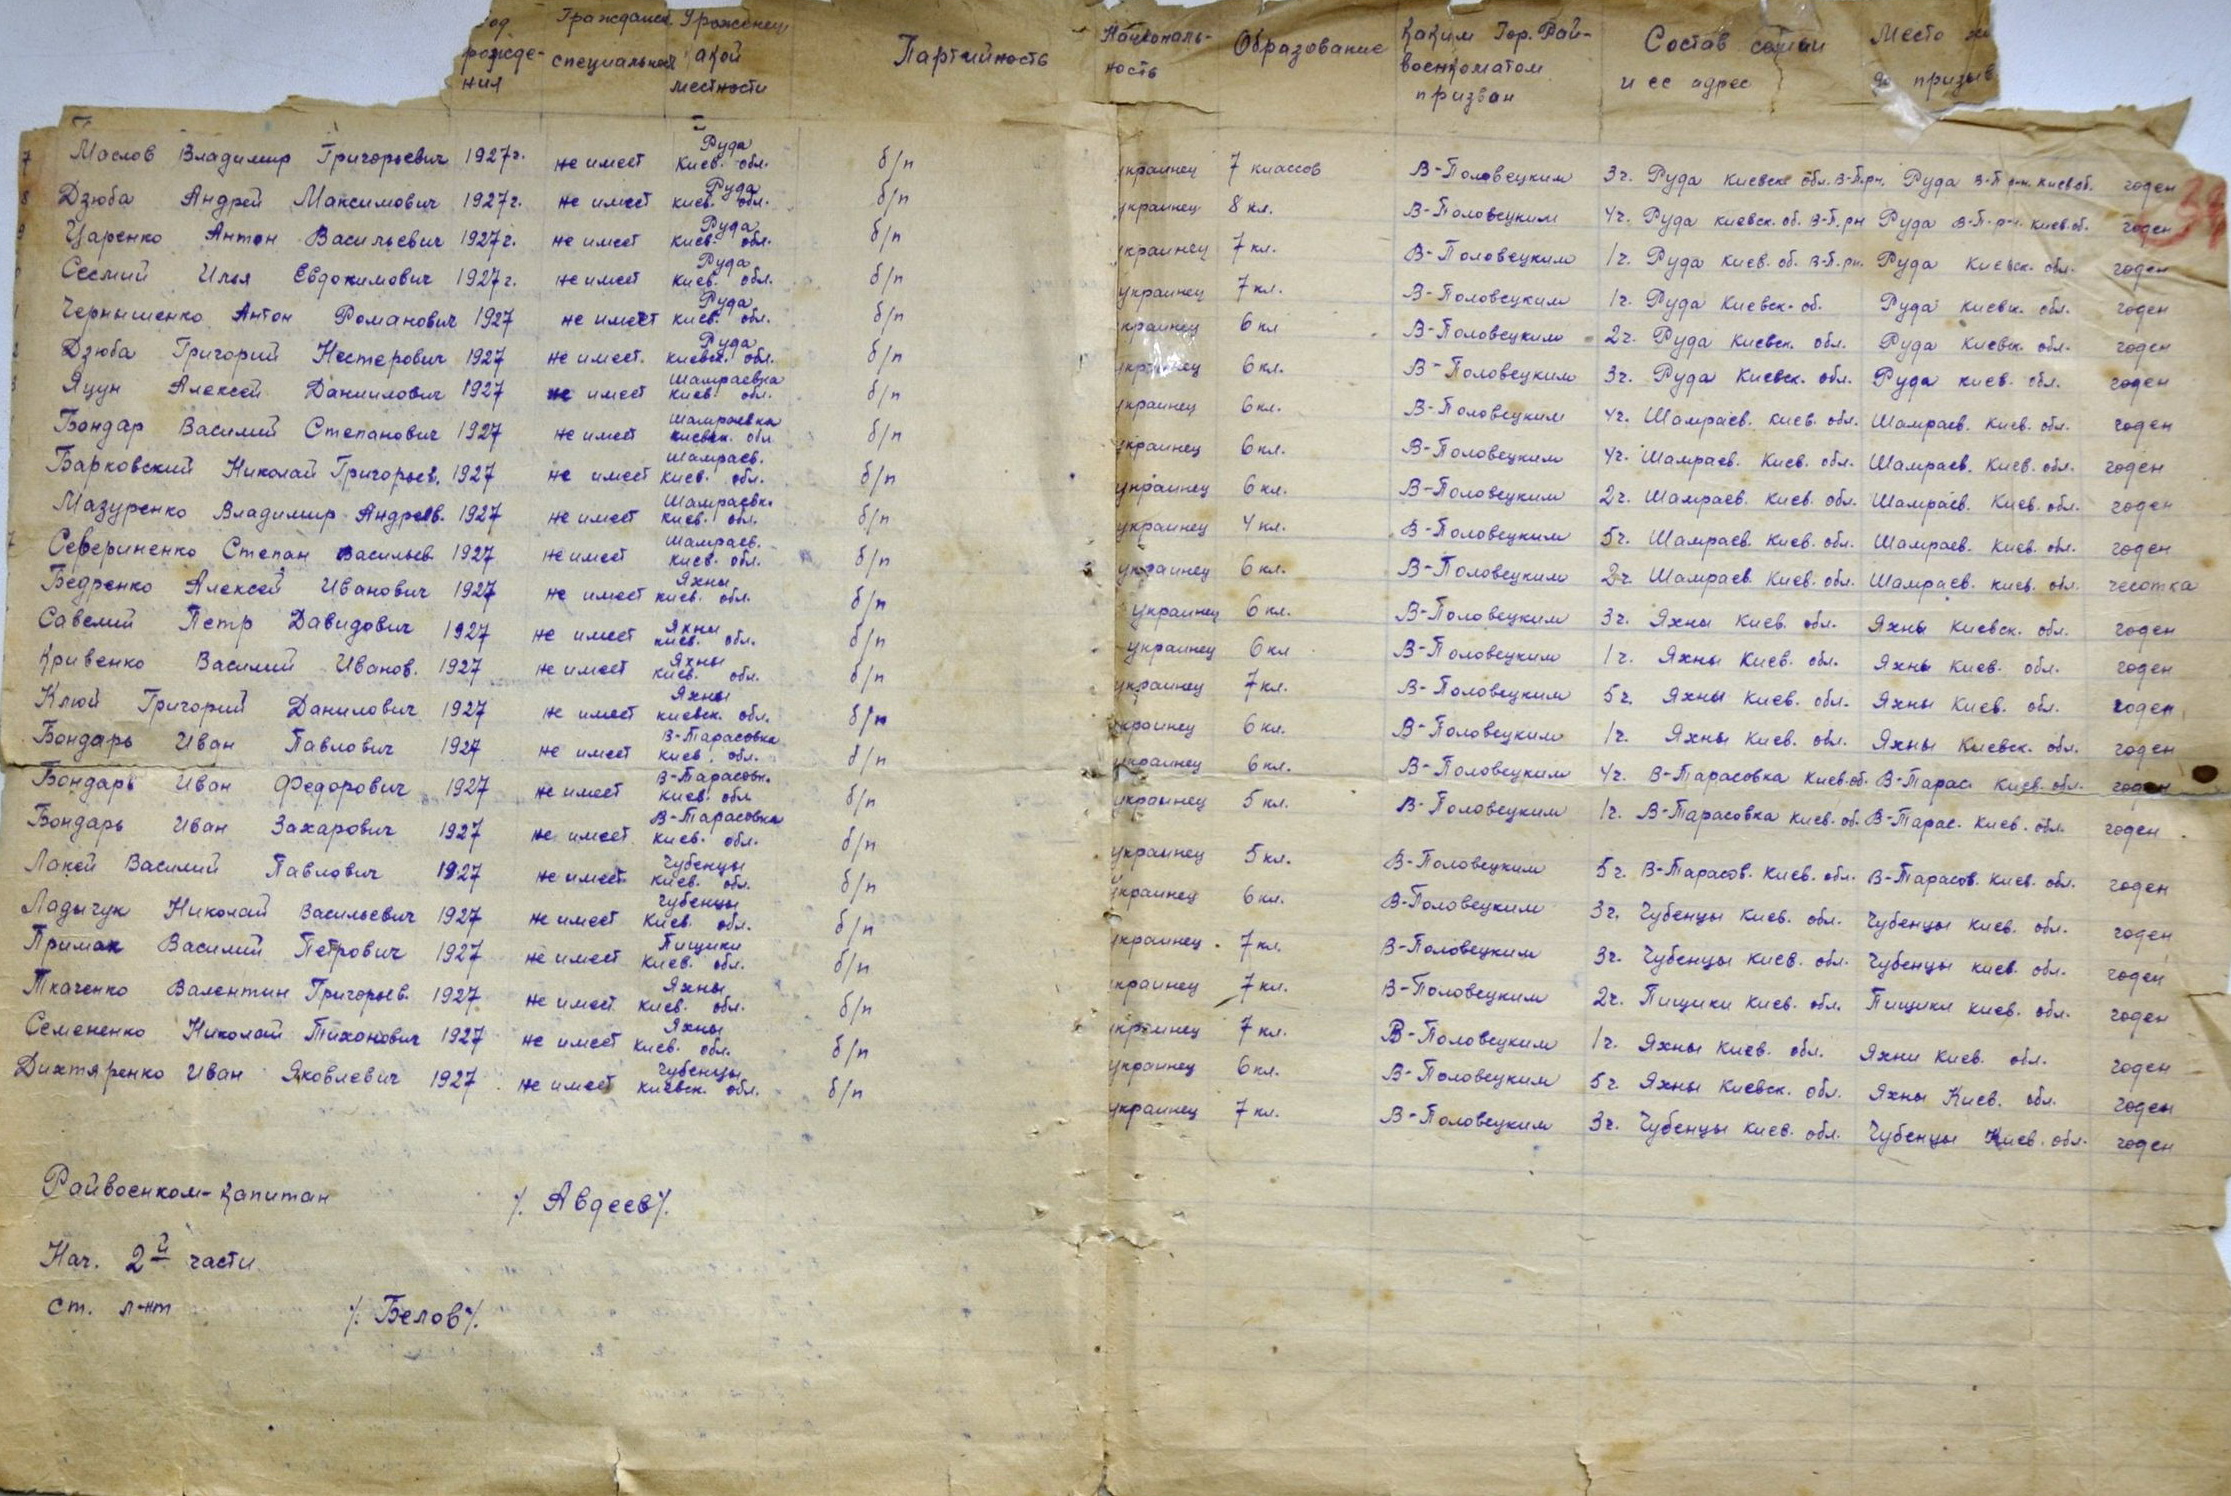 рожде- специальност какой Партийность Националь- Образование Каким Гор. Рай- Состав семьи Место
ния местности ность военкоматом и ее адрес призыв
призван
7 Маслов Владимир Григорьевич 1927г. не имеет Руда Киев. обл. б/п украинец 7 классов В-Половецким 3ч. Руда Киевск обл. В-П.рн. Руда В-П р-н. Киев об. годен
8 Дзюба Андрей Максимович 1927г. не имеет Руда киев. обл. б/п украинец 8 кл. В-Половецким 4ч. Руда Киевск. об. В-П.рн Руда В-П-р-н. Киев.об. годен
9 Царенко Антон Васильевич 1927г. не имеет Руда киев. обл. б/п украинец 7 кл. В-Половецким 1ч. Руда Киев. об. В-П.рн. Руда Киевск. обл. годен
Сесмий Илья Евдокимович 1927г. не имеет Руда киев. обл. б/п украинец 7 кл. В-Половецким 1ч. Руда Киевск. об. Руда Киевск. обл. годен
1 Чернышенко Антон Романович 1927 не имеет Руда киев. обл. б/п украинец 6 кл В-Половецким 2ч. Руда Киевск. обл. Руда Киевск. обл. годен
2 Дзюба Григорий Нестерович 1927 не имеет. Руда киевск. обл. б/п украинец 6 кл. В-Половецким 3ч. Руда Киевск. обл. Руда киев. обл. годен
3 Яцун Алексей Даниилович 1927 не имеет Шамраевка киев. обл. б/п украинец 6 кл. В-Половецким 4ч. Шамраев. Киев. обл. Шамраев. Киев. обл. годен
Бондар Василий Степанович 1927 не имеет Шамраевка киевск. обл б/п украинец 6 кл. В-Половецким 4ч. Шамраев. Киев. обл. Шамраев. Киев. обл. годен
Барковский Николай Григорьев. 1927 не имеет Шамраев. киев. обл. б/п украинец 6 кл. В-Половецким 2ч. Шамраев. Киев. обл. Шамраев. Киев. обл. годен
Мазуренко Владимир Андреев. 1927 не имеет Шамраевк. киев. обл. б/п украинец 4 кл. В-Половецким 5ч. Шамраев. Киев. обл. Шамраев. Киев. обл. годен
7 Севериненко Степан Васильев. 1927 не имеет Шамраев. киев. обл. б/п украинец 6 кл. В-Половецким 2ч. Шамраев. Киев. обл. Шамраев. Киев. обл. чесотка
Бедренко Алексей Иванович 1927 не имеет Яхны киев. обл. б/п украинец 6 кл. В-Половецким 3ч. Яхны Киев. обл. Яхны Киевск. обл. годен
Савелий Петр Давидович 1927 не имеет Яхны киев. обл. б/п украинец 6 кл В-Половецким 1ч. Яхны Киев. обл. Яхны Киев. обл. годен
Кривенко Василий Иванов. 1927 не имеет Яхны киев. обл. б/п украинец 7 кл. В-Половецким 5ч. Яхны Киев. обл. Яхны Киев. обл. годен
Клюй Григорий Данилович 1927 не имеет Яхны киевск. обл. б/п украинец 6 кл. В-Половецким 1ч. Яхны Киев. обл. Яхны Киевск. обл. годен
Бондарь Иван Павлович 1927 не имеет В-Тарасовка киев. обл. б/п украинец 6 кл. В-Половецким 4ч. В-Тарасовка Киев.об. В-Тарас. Киев. обл. годен
Бондарь Иван Федорович 1927 не имеет В-Тарасовк. киев. обл б/п украинец 5 кл. В-Половецким 1ч. В-Тарасовка Киев. об. В-Тарас. Киев. обл. годен
Бондарь Иван Захарович 1927 не имеет. В-Тарасовка киев. обл. б/п украинец 5 кл. В-Половецким 5ч. В-Тарасов. Киев. обл. В-Тарасов. Киев. обл. годен
Лакей Василий Павлович 1927 не имеет Чубенцы киев. обл. б/п украинец 6 кл. В-Половецким 3ч. Чубенцы Киев. обл. Чубенцы Киев. обл. годен
Ладычук Николай Васильевич 1927 не имеет Чубенцы Киев. обл. б/п украинец 7 кл. В-Половецким 3ч. Чубенцы Киев. обл. Чубенцы Киев. обл. годен
Примак Василий Петрович 1927 не имеет Пищики Киев. обл. б/п украинец 7 кл. В-Половецким 2ч. Пищики Киев. обл. Пищики Киев. обл. годен
Ткаченко Валентин Григорьев. 1927 не имеет Яхны Киев. обл. б/п украинец 7 кл. В-Половецким 1ч. Яхны Киев. обл. Яхни Киев. обл. годен
Семененко Николай Тихонович 1927 не имеет Яхны киев. обл. б/п украинец 6 кл. В-Половецким 5ч. Яхны Киевск. обл. Яхны Киев. обл. годен
Дихтяренко Иван Яковлевич 1927 не имеет Чубенцы киевск. обл. б/п украинец 7 кл. В-Половецким 3ч. Чубенцы Киев. обл. Чубенцы Киев. обл. годен
Райвоенком-капитан /. Авдеев/.
Нач. 2й части
ст. л-нт /. Белов/.